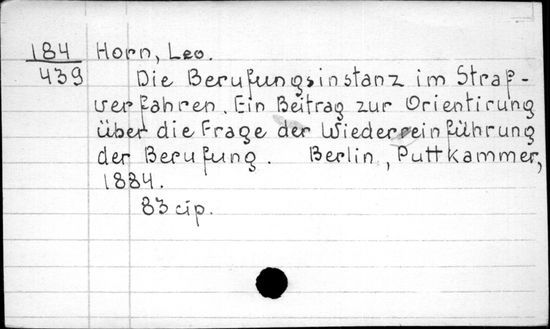 184 Horn, Leo.
439 Die Berufungsinstanz im Straf-
verfahren. Ein Beitrag zur Orientirung
über die Frage der Wiedereinführung
der Berufung. Berlin, Puttkammer,
1884.
83 cip.